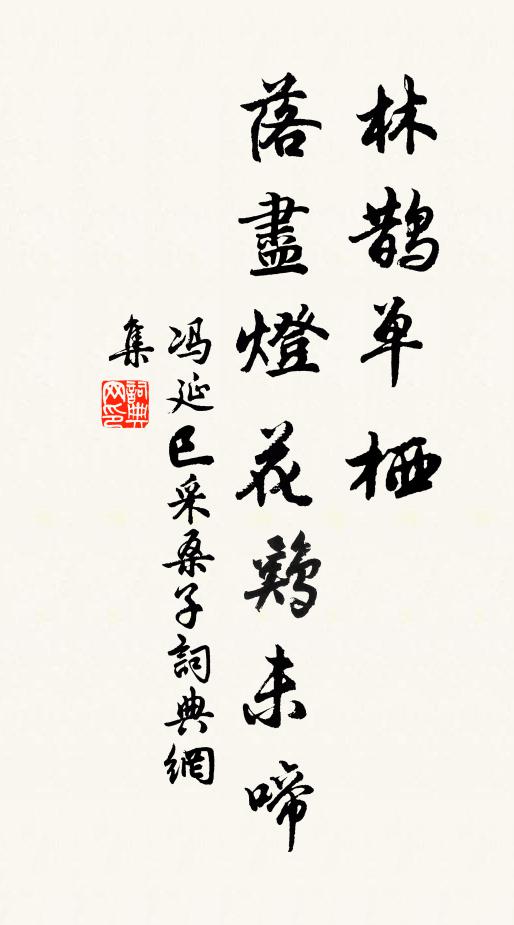 林鹊单栖
落盡燈花鷄未啼
冯延巳采桑子詞典網
集
詞典網印